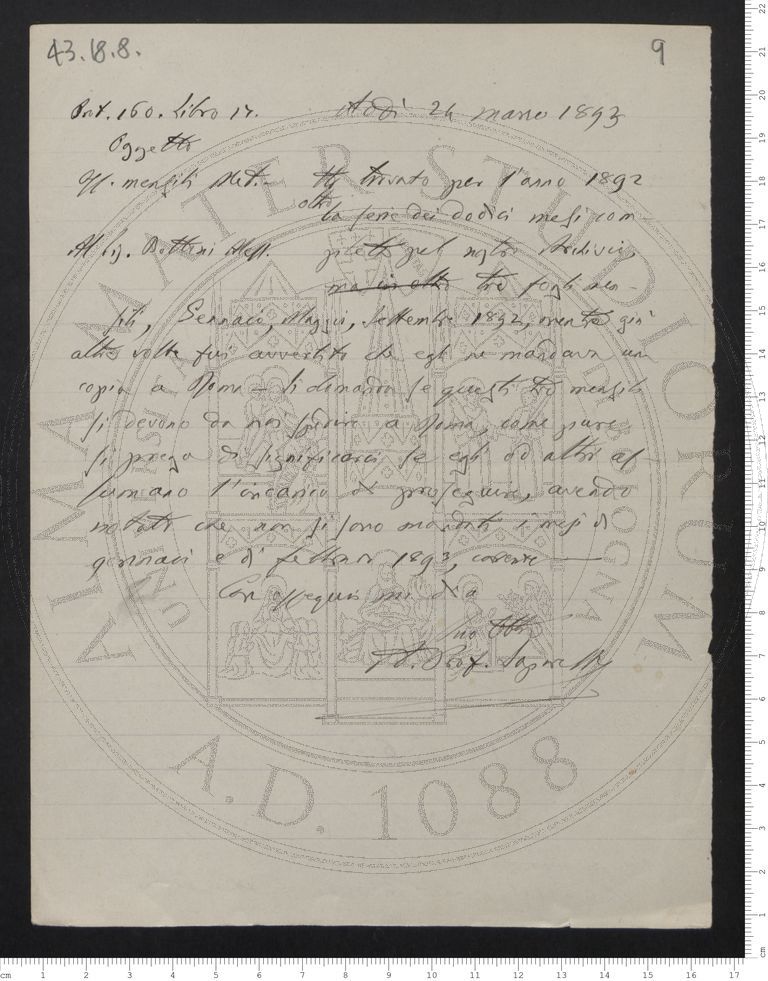 43.18.8. 9
Prot. 160. Libro 17. Addì 24 marzo 1893
Oggetto
Oss. mensili Met. Ho trovato per l'anno 1892
oltre
la serie dei dodici mesi com-
Al Sig. Bottini Mess. pleta pel nostro Archivio,
tre fogli men-
sili, Gennaio, Maggio, Settembre 1892, mentre già
altre volte fui avvertito che egli ne mandava una
copia a Roma – Si dimanda se questi tre mensili
si devono da noi spedire a Roma, come pure
si prega di significarci se egli od altri as-
sumano l'incarico di proseguire, avendo
notato che non si sono mandati i mesi di
gennaio e di febbraio 1893, corrente
Con ossequio mi dico
Suo
Prof.
ALMA MATER STUDIORUM
A.D. 1088
cm 1 2 3 4 5 6 7 8 9 10 11 12 13 14 15 16 17
22 21 20 19 18 17 16 15 14 13 12 11 10 9 8 7 6 5 4 3 2 1 cm